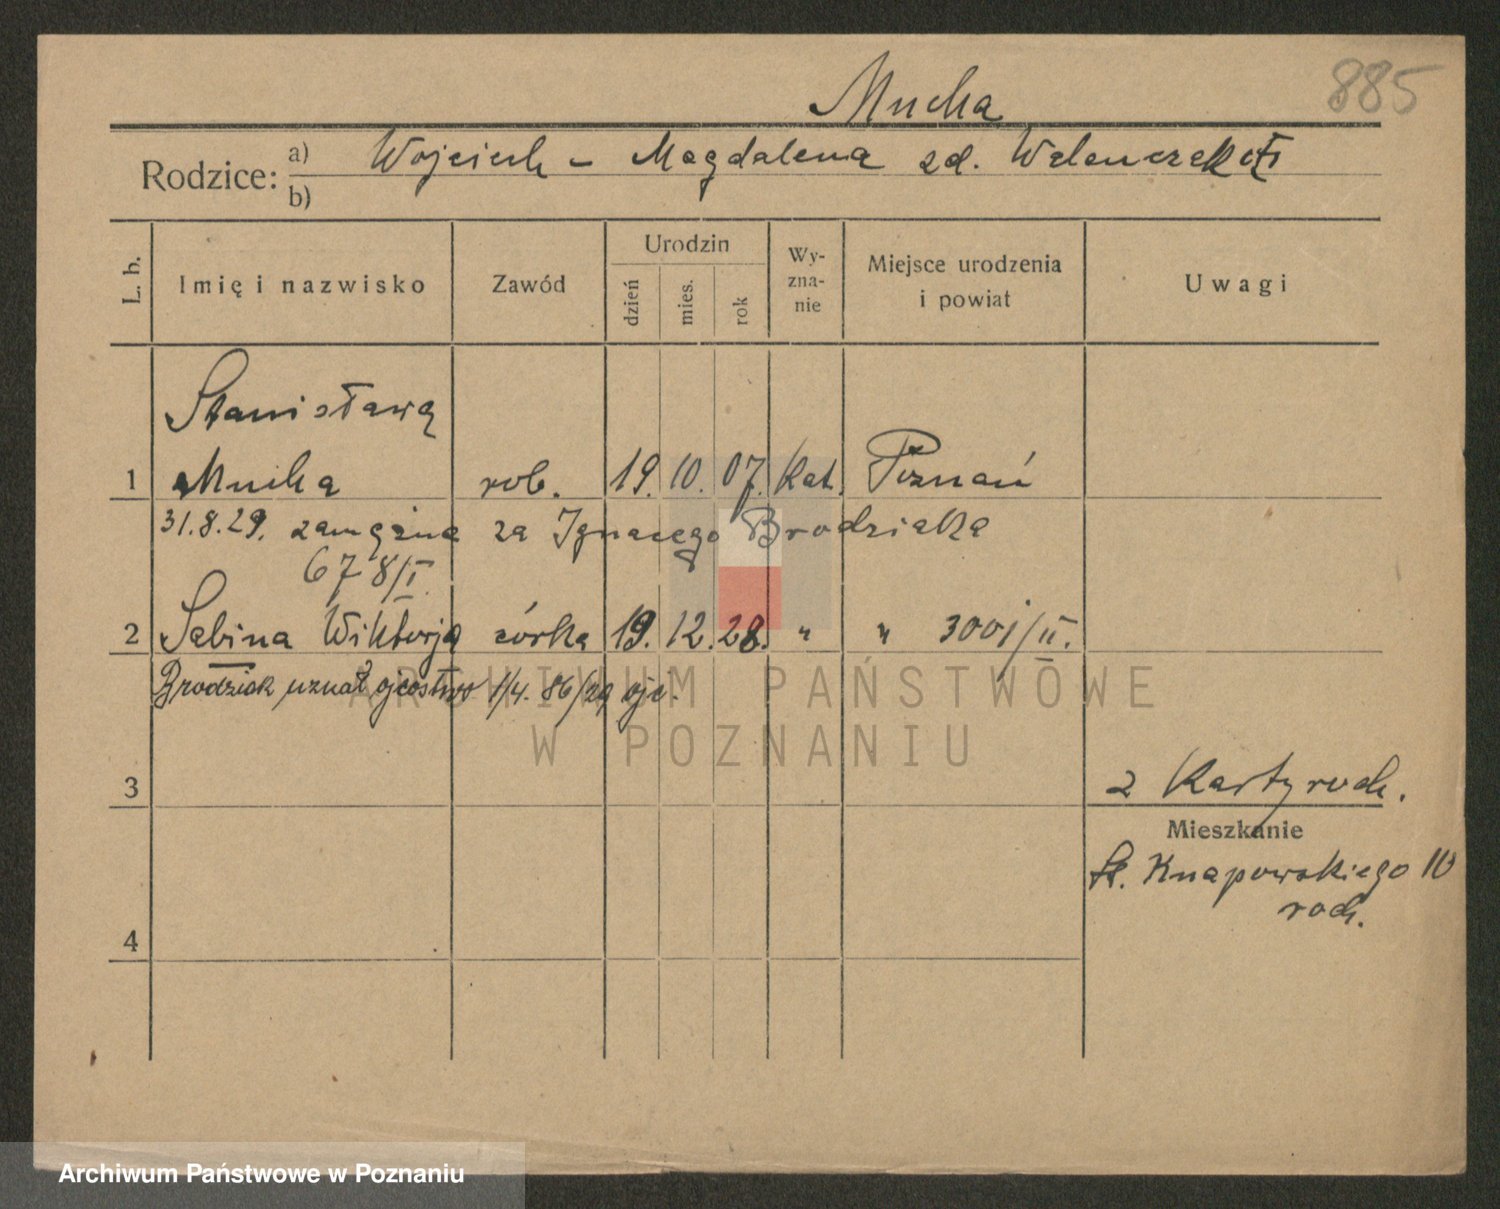 885
Mucha
Rodzice: a) Wojciech - Magdalena zd.
b)
L. b.
Imię i nazwisko
Zawód
Urodzin
dzień
mies.
rok
Wy-
zna-
nie
Miejsce urodzenia
i powiat
Uwagi
Stanisława
1 Mucha rob. 19. 10. 07. Kat. Poznań
31.8.29. zamężna za Ignacego Brodziaka
678/I
2 Sabina Wiktorja córka 19. 12. 28. " " 3001/II.
Brodziak uznał ojcostwo 1/4. 86/29 ojc.
ARCHIWUM PAŃSTWOWE
W POZNANIU
3
2 Karty rodz.
Mieszkanie
Fr. Knapowskiego 10
rodz.
4
Archiwum Państwowe w Poznaniu